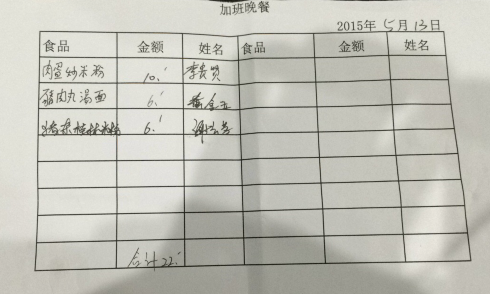 加班晚餐
2015年 5月 13日
食品 金额 姓名 食品 金额 姓名
肉蛋炒米粉 10.
猪肉丸汤面 6.
6.
合计 22.